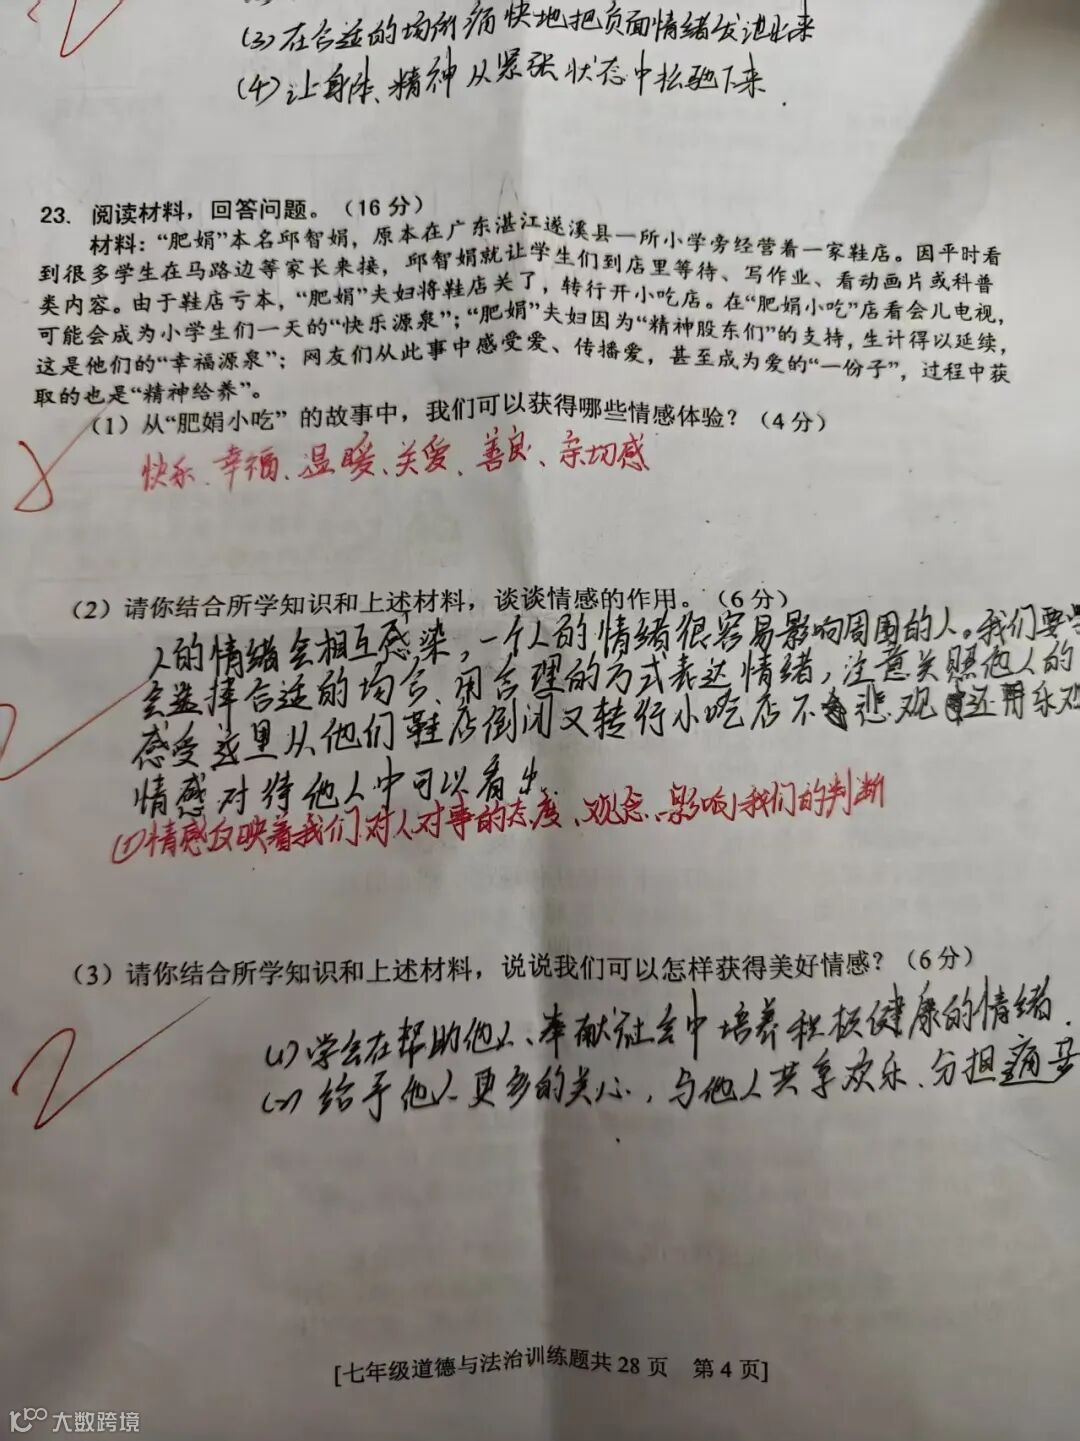 (3)在合适的场所痛快地把负面情绪发泄出来
(4)让身体、精神从紧张状态中松驰下来.
23. 阅读材料，回答问题。（16分）
材料：“肥娟”本名邱智娟，原本在广东湛江遂溪县一所小学旁经营着一家鞋店。因平时看
到很多学生在马路边等家长来接，邱智娟就让学生们到店里等待、写作业、看动画片或科普
类内容。由于鞋店亏本，“肥娟”夫妇将鞋店关了，转行开小吃店。在“肥娟小吃”店看会儿电视，
可能会成为小学生们一天的“快乐源泉”；“肥娟”夫妇因为“精神股东们”的支持，生计得以延续，
这是他们的“幸福源泉”；网友们从此事中感受爱、传播爱，甚至成为爱的“一份子”，过程中获
取的也是“精神给养”。
（1）从“肥娟小吃”的故事中，我们可以获得哪些情感体验？（4分）
快乐、幸福、温暖、关爱、善良、亲切感
（2）请你结合所学知识和上述材料，谈谈情感的作用。（6分）
人的情绪会相互感染，一个人的情绪很容易影响周围的人。我们要学
会选择合适的场合、用合理的方式表达情绪，注意关照他人的
感受这里从他们鞋店倒闭又转行小吃店不悲观还用乐观
情感对待他人中可以看出.
(1)情感反映着我们对人对事的态度、观念、影响我们的判断
（3）请你结合所学知识和上述材料，说说我们可以怎样获得美好情感？（6分）
(1)学会在帮助他人、奉献社会中培养积极健康的情绪.
(2)给予他人更多的关心，与他人共享欢乐、分担痛苦
[七年级道德与法治训练题共28页 第4页]
大数跨境